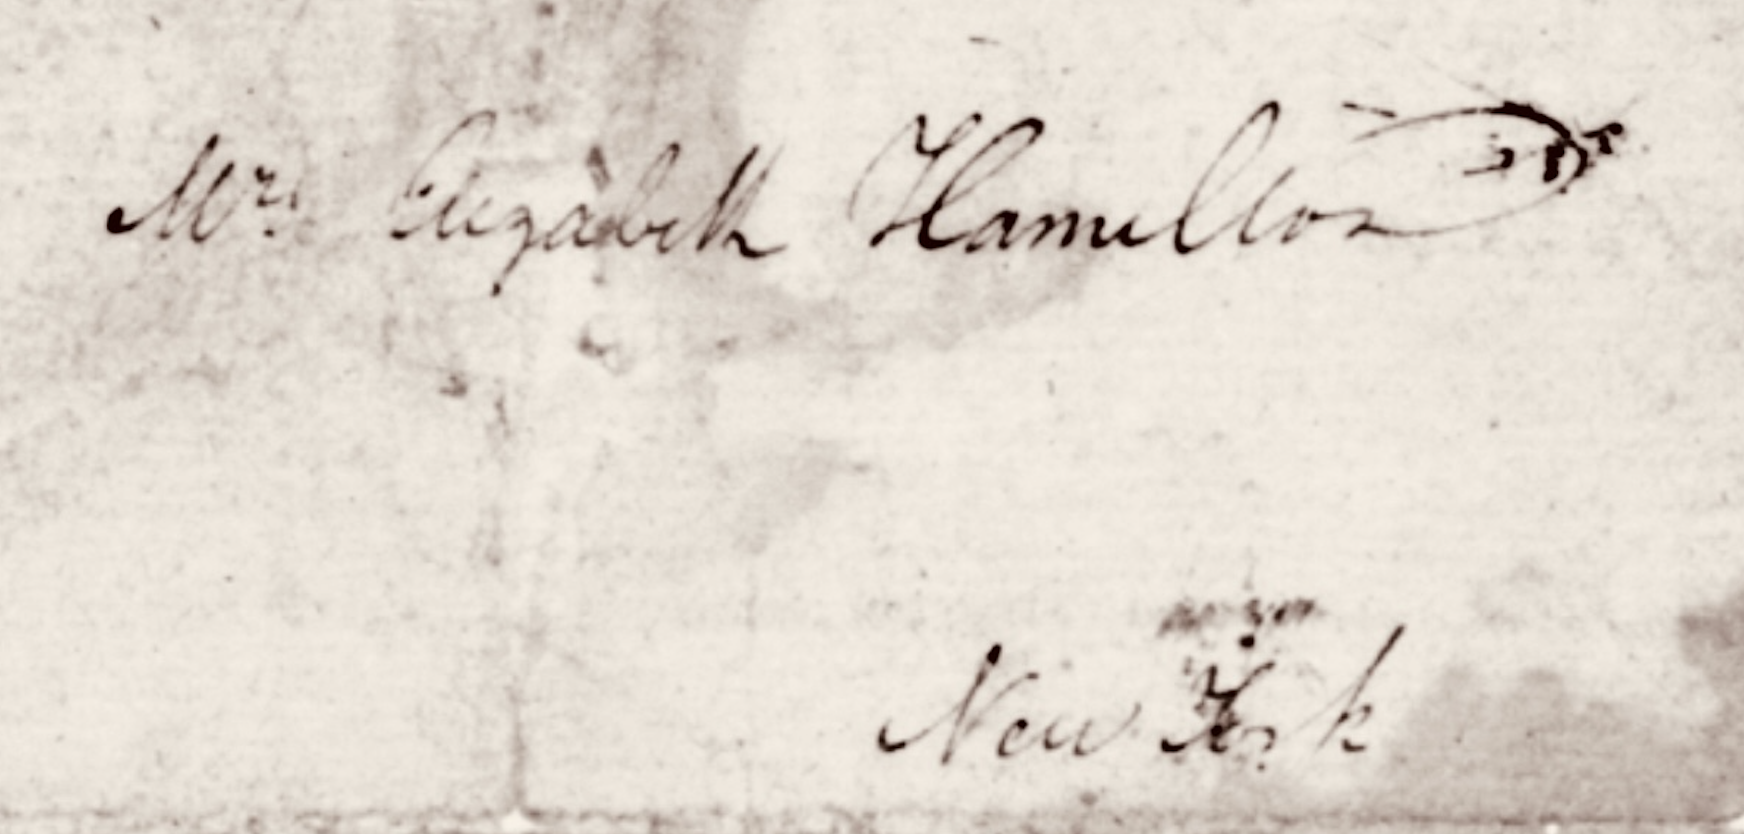 Mrs. Elizabeth Hamilton
New York